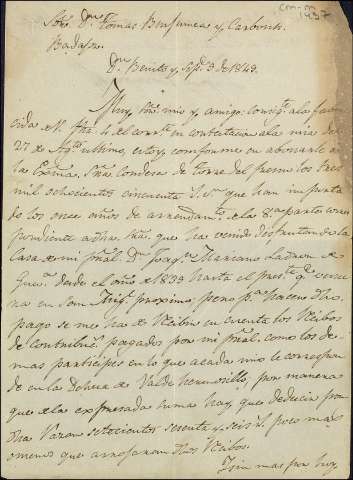 CM-M
1937
Sor. Dn. Tomas
Badajoz.
Dn. Benito y Sepe. 3 de 1849.
Muy Sor. mio y amigo: consigte. a la favo-
recida de V. fha. 1 del corrte. en contestacion a la mia de
27 de Agto. ultimo, estoy conforme en abonarle a
la Exma. Sra. Condesa de Torre del Fresno los tres
mil ochocientos cincuenta rs. vn. que han importa
do los once años de arrendamto. de la 8a. parte corres
pondiente a dha. Sra. que ha venido disfrutando la
Casa de mi pral. Dn. Joaqn. Mariano Ladron de
Guevra. desde el año de 1839 hasta el preste. qe. vence
ra en San Migl. proximo; pero pa. hacerse dho.
pago se me han de recibir en cuenta los Recibos
de contribucs. pagados por mi pral. como los de-
mas participes en lo que a cada uno le correspon
de en la Dehesa de Valde por manera
que de la expresada suma hay que deducir por
dha. razon setecientos setenta y seis rs. poco mas
o menos que arrojaran dhos Recibos.
Sin mas por hoy